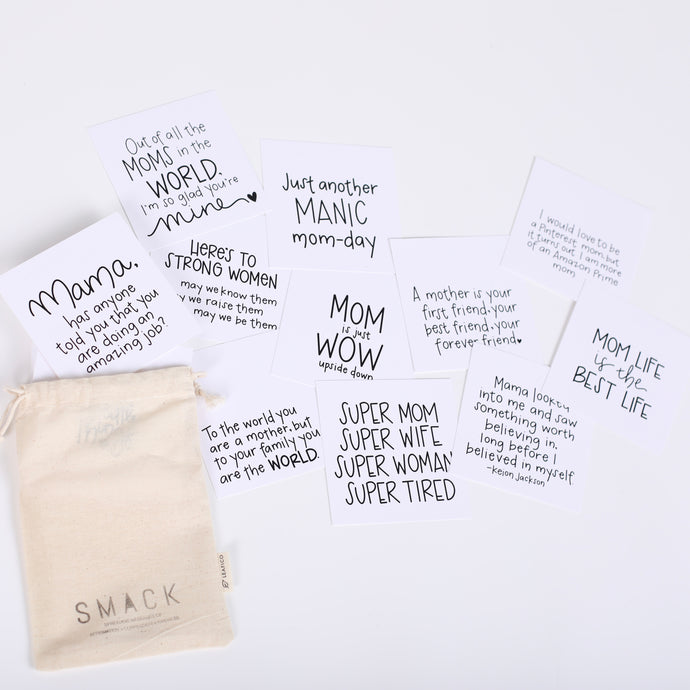 Out of all the
MOMS in the
WORLD.
I'm so glad you're
mine
Just another
MANIC
mom-day
I would love to be
a Pinterest mom, but
it turns out I am more
of an Amazon Prime
mom.
Mama,
has anyone
told you that you
are doing an
amazing job?
HERE'S TO
STRONG WOMEN
may we know them
we raise them
may we be them
MOM
is just
WOW
upside down
A mother is your
first friend, your
best friend, your
forever friend.
MOM LIFE
is the
BEST LIFE
To the world you
are a mother, but
to your family you
are the WORLD.
SUPER MOM
SUPER WIFE
SUPER WOMAN
SUPER TIRED
Mama
into me and saw
something worth
believing in.
long before I
believed in myself.
-keion jackson
SMACK